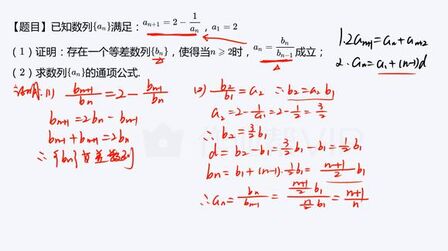 【题目】已知数列{aₙ}满足：aₙ₊₁=2-1/aₙ，a₁=2
（1）证明：存在一个等差数列{bₙ}，使得当n≥2时，aₙ=bₙ/bₙ₋₁成立；
（2）求数列{aₙ}的通项公式.
1.2aₙ₊₁=aₙ+aₙ₊₂
2.aₙ=a₁+(n-1)d
证明:(1) bₙ₊₁/bₙ=2-bₙ₋₁/bₙ
bₙ₊₁=2bₙ-bₙ₋₁
bₙ₊₁+bₙ₋₁=2bₙ
∴{bₙ}为等差数列
(2) b₂/b₁=a₂ ∴b₂=a₂b₁
a₂=2-1/a₁=2-1/2=3/2
∴b₂=3/2b₁
d=b₂-b₁=3/2b₁-b₁=1/2b₁
bₙ=b₁+(n-1)·1/2b₁=(n+1)/2 b₁
∴aₙ=bₙ/bₙ₋₁=((n+1)/2 b₁)/(n/2 b₁)=(n+1)/n